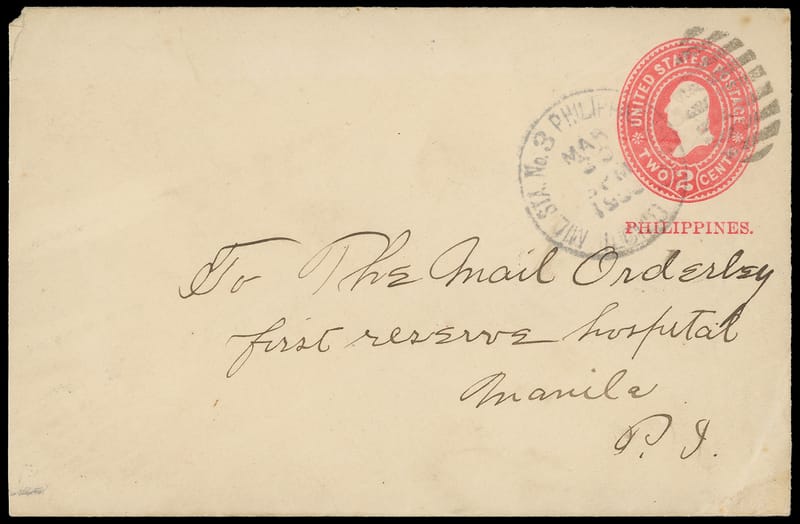 UNITED STATES POSTAGE
TWO 2 CENTS
PHILIPPINES.
MIL. STA. No. 3 PHILIPP
MAR
To The Mail Orderley
first reserve hospital
Manila
P. I.